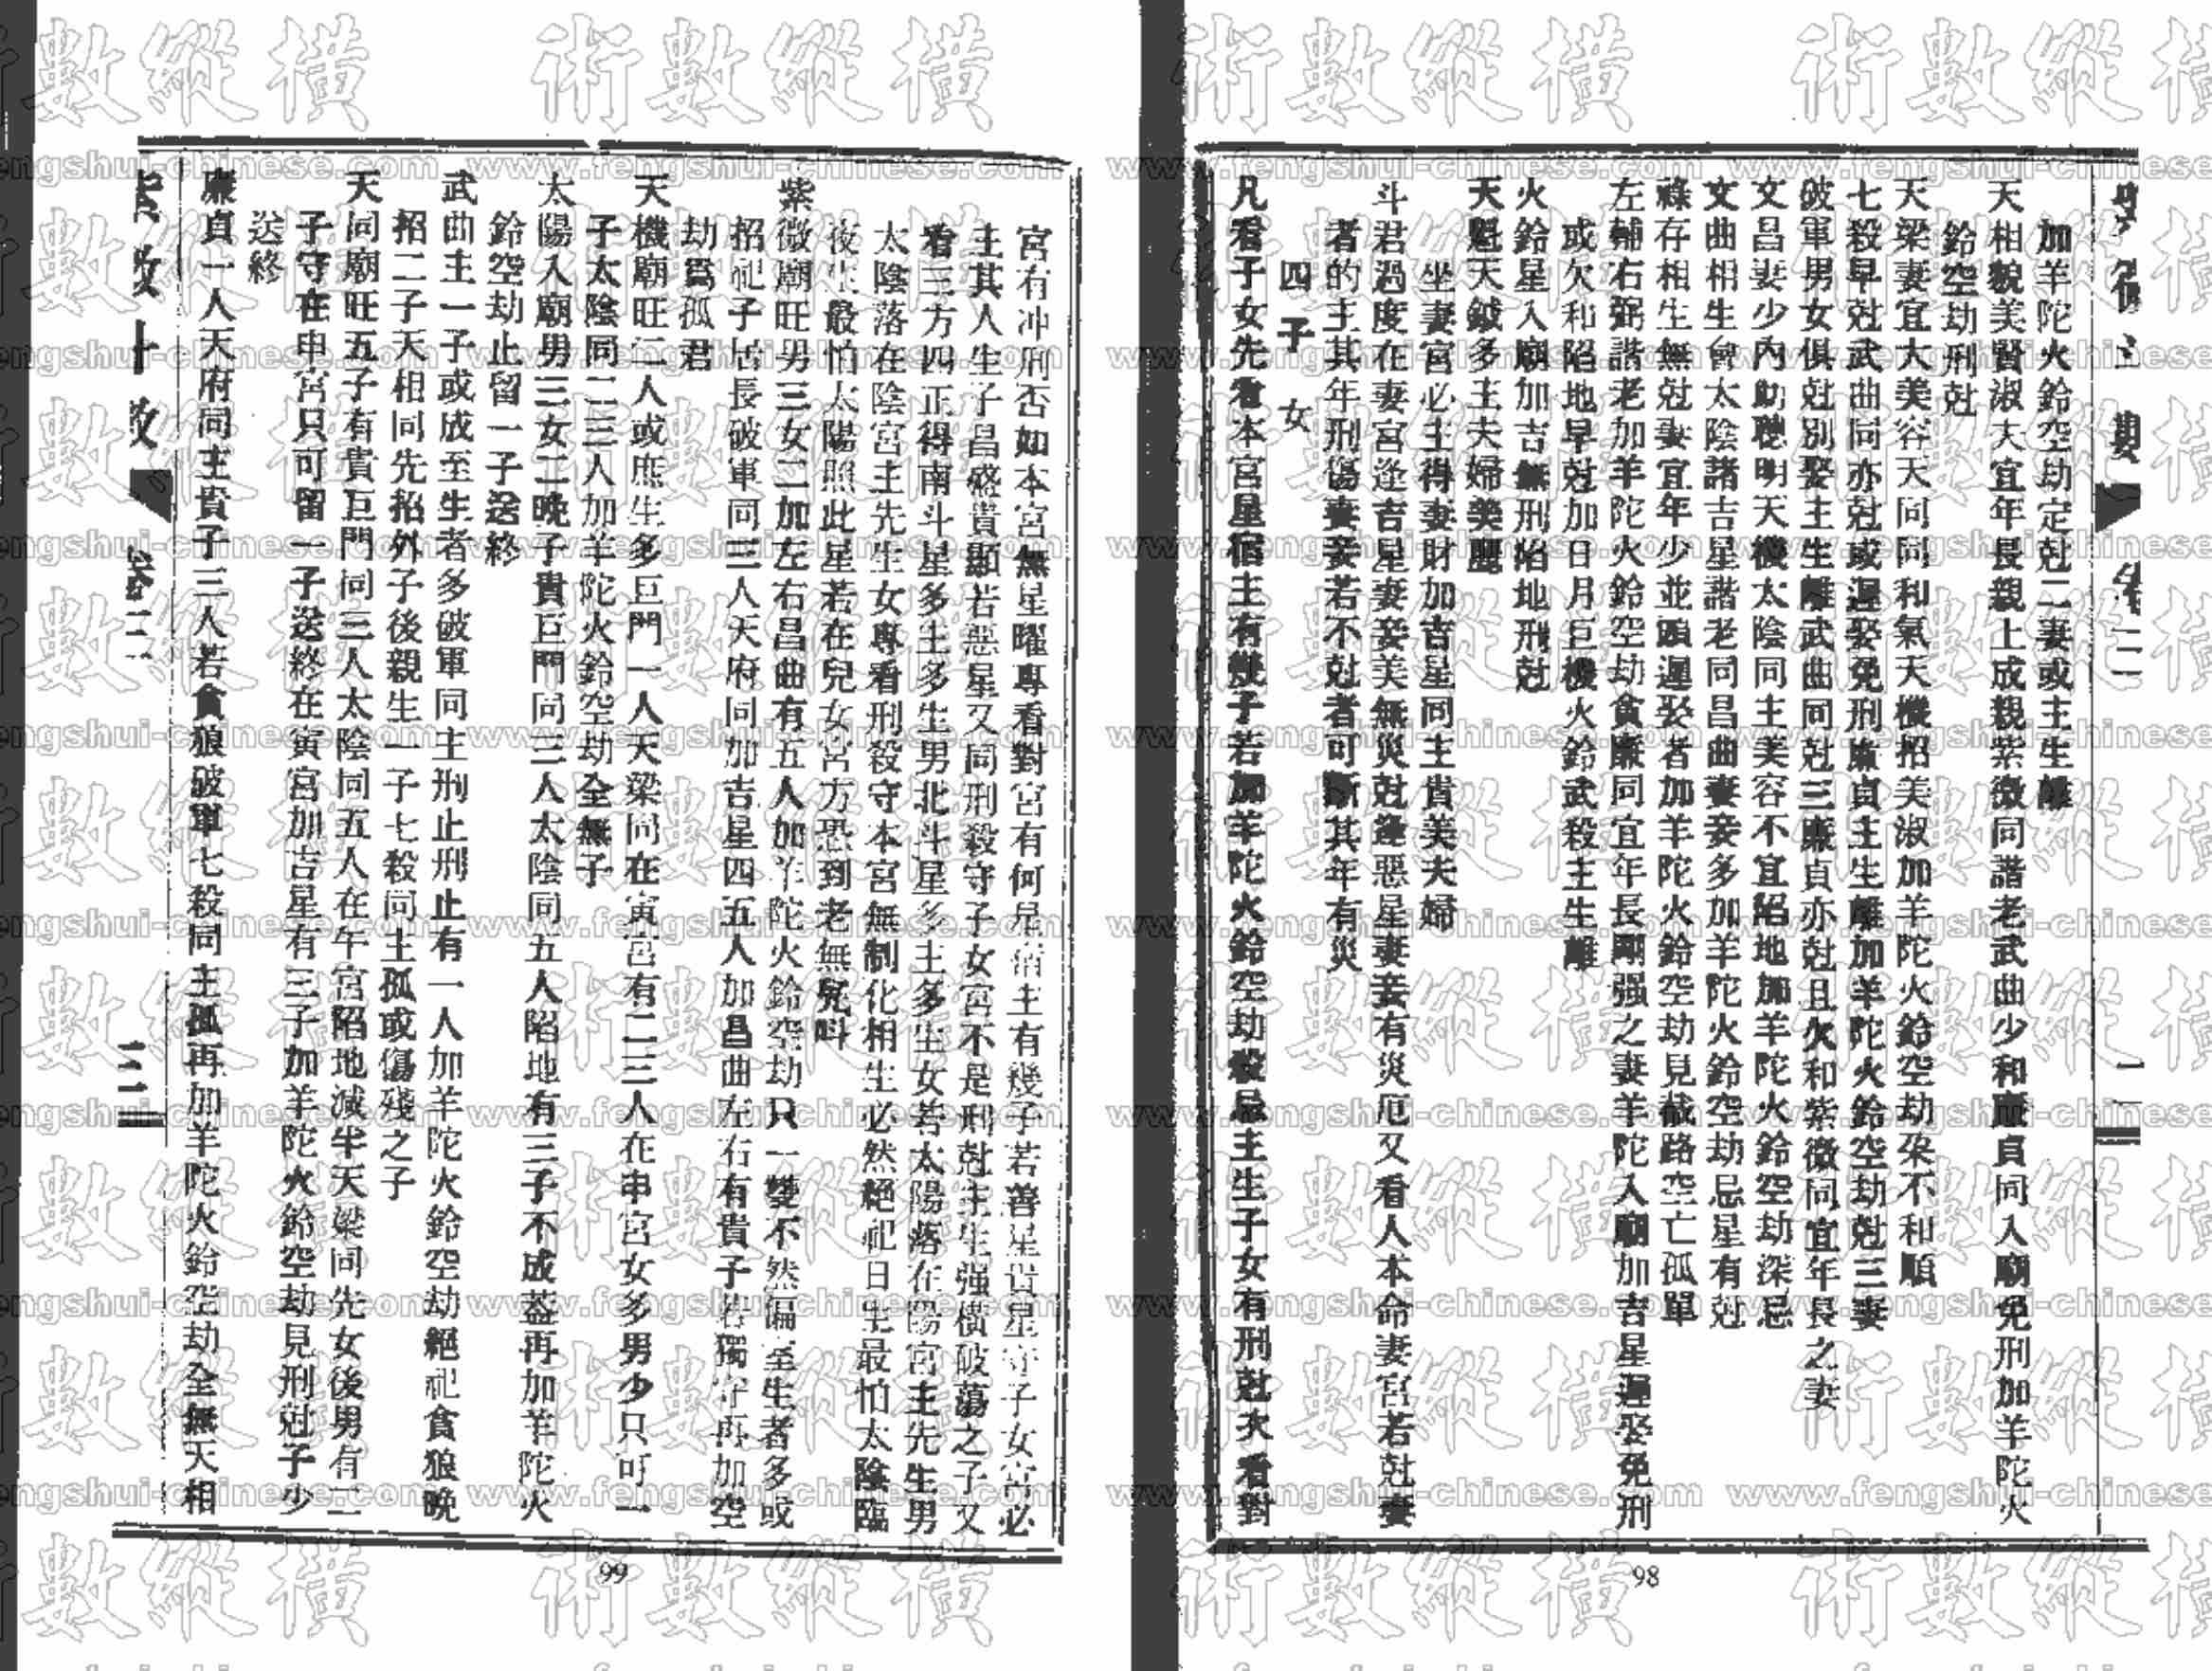 加羊陀火鈴空劫定尅二妻或主生離
天相貌美賢淑夫宜年長親上成親紫微同諧老武曲少和廉貞同入廟免刑加羊陀火
鈴空劫刑尅
天梁妻宜大美容天同同和氣天機招美淑加羊陀火鈴空劫朶不和順
七殺早尅武曲同亦尅或遲娶免刑廉貞主生離加羊陀火鈴空劫尅三妻
破軍男女俱尅別娶主生離武曲同尅三廉貞亦尅且欠和紫微同宜年長之妻
文昌妻少內助聰明天機太陰同主美容不宜陷地加羊陀火鈴空劫深忌
文曲相生會太陰諸吉星諧老同昌曲妻妾多加羊陀火鈴空劫忌星有尅
祿存相生無尅妻宜年少並頭遲娶者加羊陀火鈴空劫見截路空亡孤單
左輔右弼諧老加羊陀火鈴空劫貪廉同宜年長剛强之妻羊陀入廟加吉星遲娶免刑
或欠和陷地早尅加日月巨機火鈴武殺主生離
火鈴星入廟加吉無刑陷地刑尅
天魁天鉞多主夫婦美麗
坐妻宮必主得妻財加吉星同主貴美夫婦
斗君過度在妻宮逢吉星妻妾美無災尅逢惡星妻妾有災厄又看人本命妻宮若尅妻
者的主其年刑傷妻妾若不尅者可斷其年有災
四子女
凡看子女先看本宮星宿主有幾子若加羊陀火鈴空劫殺忌主生子女有刑尅次看對
98
宮有冲刑否如本宮無星曜專看對宮有何星宿主有幾子若善星貴星守子女宮必
主其人生子昌盛貴顯若惡星又同刑殺守子女宮不是刑尅主生强橫破蕩之子又
看三方四正得南斗星多主多生男北斗星多主多生女若太陽落在陽宮主先生男
太陰落在陰宮主先生女專看刑殺守本宮無制化相生必然絕祀日生最怕太陰臨
夜生最怕太陽照此星若在兒女宮方恐到老無兒呌
紫微廟旺男三女二加左右昌曲有五人加羊陀火鈴空劫只一雙不然偏室生者多或
招祀子居長破軍同三人天府同加吉星四五人加昌曲左右有貴子若獨守再加空
劫爲孤君
天機廟旺二人或庶生多巨門一人天梁同在寅宮有二三人在申宮女多男少只可一
子太陰同二三人加羊陀火鈴空劫全無子
太陽入廟男三女二晚子貴巨門同三人太陰同五人陷地有三子不成葢再加羊陀火
鈴空劫止留一子送終
武曲主一子或成至生者多破軍同主刑止刑止有一人加羊陀火鈴空劫絕祀貪狼晚
招二子天相同先招外子後親生一子七殺同主孤或傷殘之子
天同廟旺五子有貴巨門同三人太陰同五人在午宮陷地減半天梁同先女後男有二
子守在申宮只可留一子送終在寅宮加吉星有三子加羊陀火鈴空劫見刑尅子少
送終
廉貞一人天府同主貴子三人若貪狼破軍七殺同主孤再加羊陀火鈴空劫全無天相
卷三
三
99